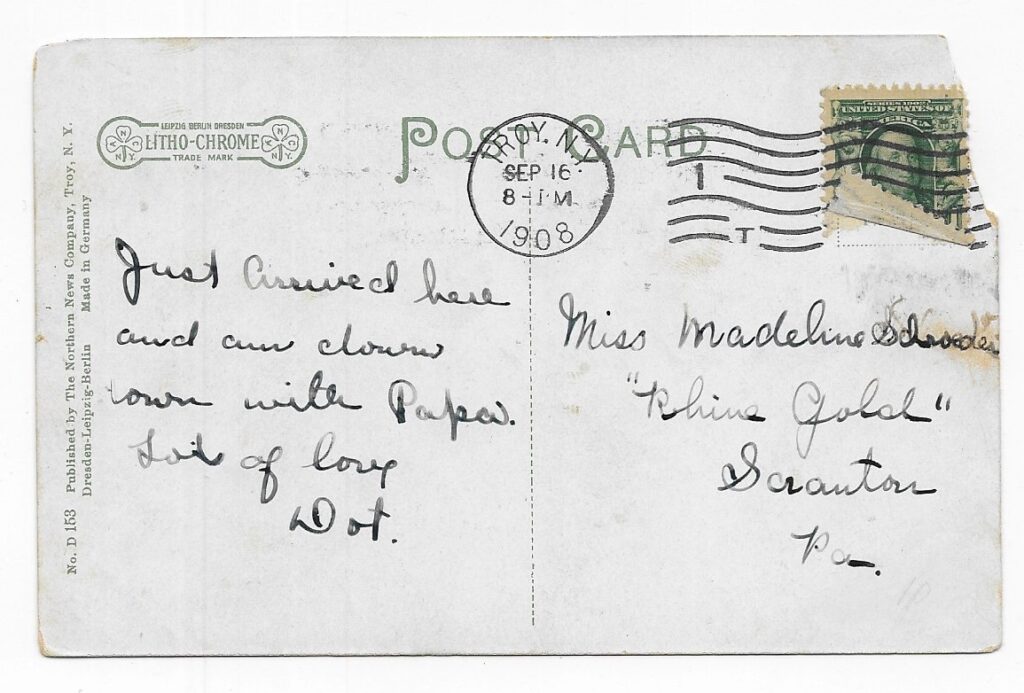 LEIPZIG BERLIN DRESDEN
LITHO-CHROME
TRADE MARK
POST CARD
TROY, N.Y.
SEP 16
8-
1908
1
T
SERIES 1902
UNITED STATES OF
AMERICA
Just Arrived here
and am down
town with Papa.
Lots of love
Dot.
Miss Madeline Schroeder
"Rhine Gold"
Scranton
Pa.
No. D 153 Published by The Northern News Company, Troy, N. Y.
Dresden-Leipzig-Berlin Made in Germany